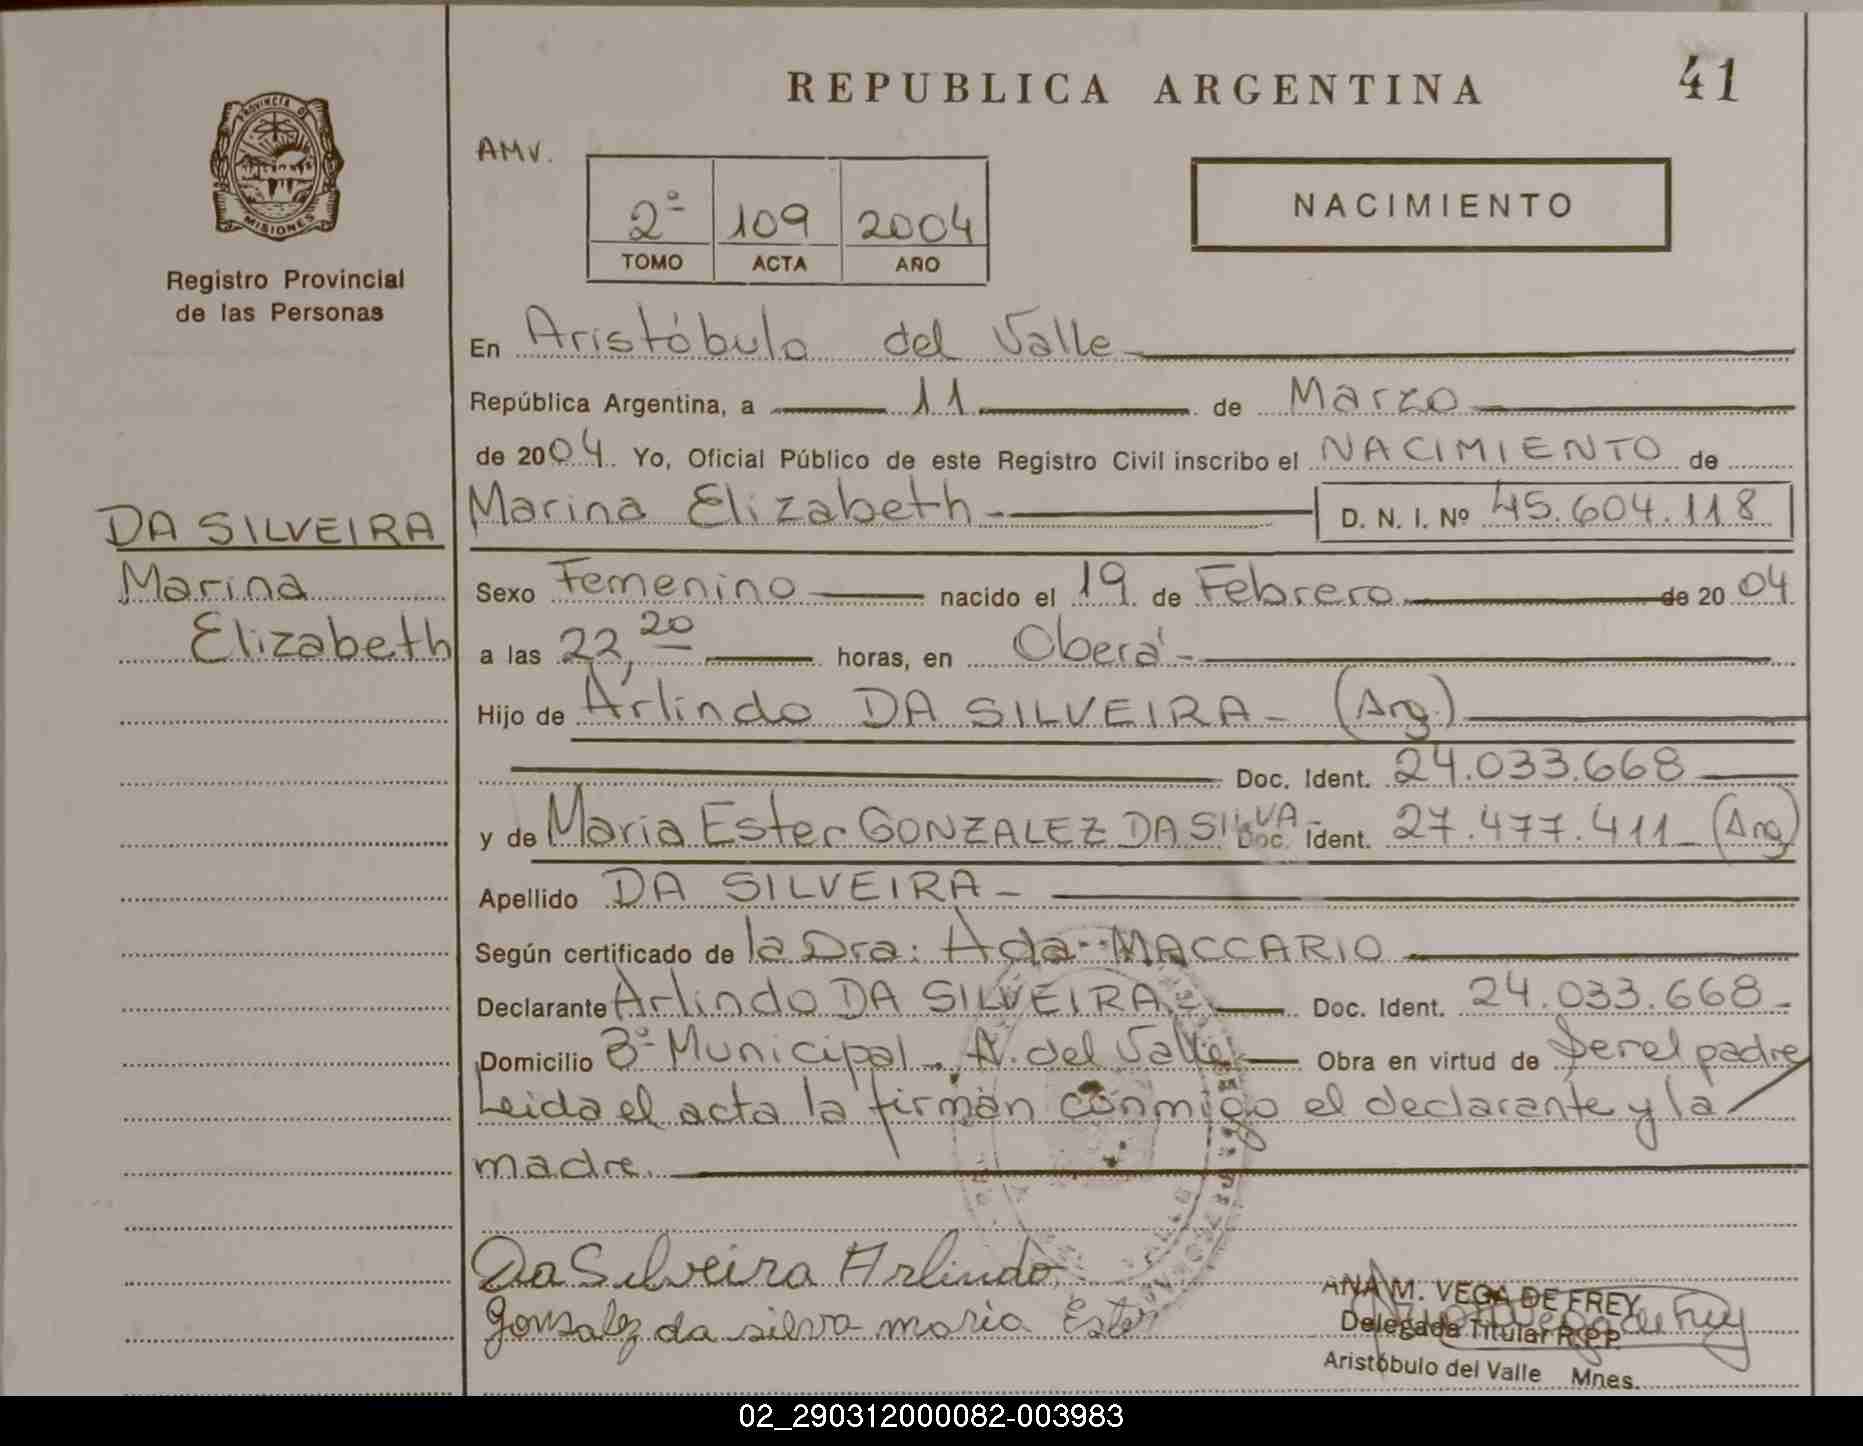 REPUBLICA ARGENTINA
41
PROVINCIA D
MISIONES
Registro Provincial
de las Personas
AMV.
2º 109 2004
TOMO ACTA AÑO
NACIMIENTO
En Aristóbulo del Valle
República Argentina, a 11 de Marzo
de 2004. Yo, Oficial Público de este Registro Civil inscribo el NACIMIENTO de
Marina Elizabeth D. N. I. Nº 45.604.118
DA SILVEIRA
Marina
Elizabeth
Sexo Femenino nacido el 19 de Febrero de 2004
a las 22,20 horas, en Oberá
Hijo de Arlindo DA SILVEIRA - (Arg.)
Doc. Ident. 24.033.668
y de Maria Ester GONZALEZ DA SILVA - Doc. Ident. 27.477.411 - (Arg)
Apellido DA SILVEIRA -
Según certificado de la Dra: Ada MACCARIO
Declarante Arlindo DA SILVEIRA - Doc. Ident. 24.033.668 -
Domicilio Bº Municipal - A. del Valle Obra en virtud de Ser el padre
Leida el acta la firman conmigo el declarante y la
madre.
Da Silveira Arlindo
Gonsalez da silva maria Ester
ANA M. VEGA DE FREY
Delegada Titular R.P.P.
Aristóbulo del Valle Mnes.
02_290312000082-003983